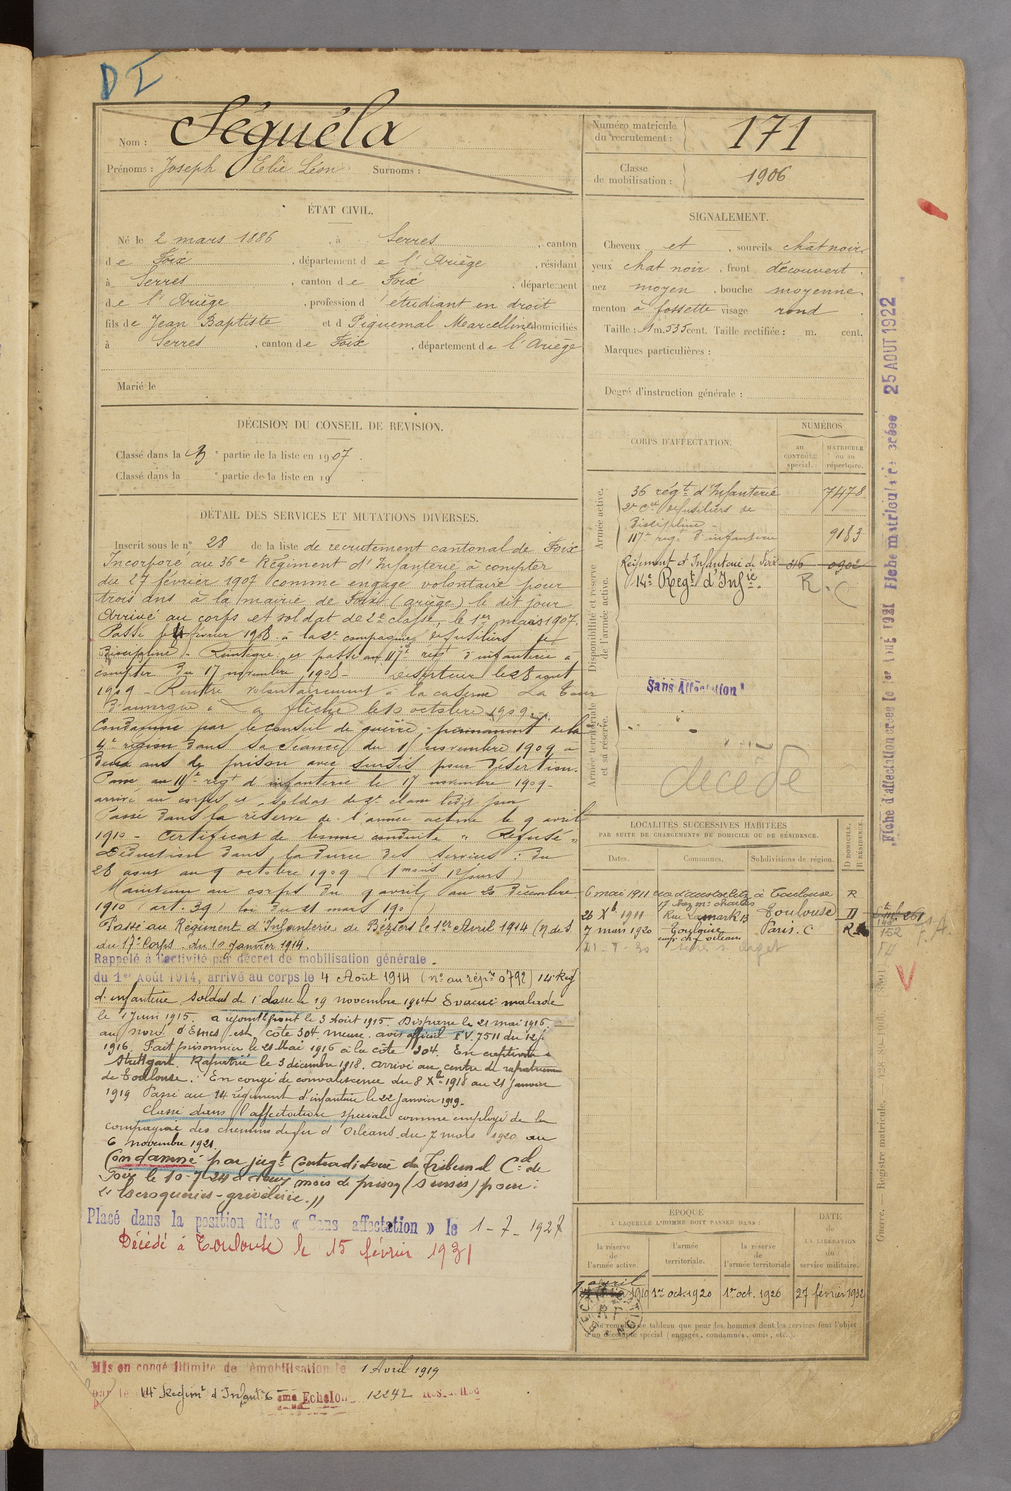 D I
Nom : Séguéla
Prénoms : Joseph Elie Léon Surnoms :
Numéro matricule du recrutement : 171
Classe de mobilisation : 1906
ÉTAT CIVIL.
Né le 2 mars 1886, à Serres, canton
de Foix, département de l'Ariège, résidant
à Serres, canton de Foix, département
de l'Ariège, profession d'étudiant en droit
fils de Jean Baptiste et d Piquemal Marcelline domiciliés
à Serres, canton de Foix, département de l'Ariège
Marié le
SIGNALEMENT.
Cheveux et, sourcils chat noir
yeux chat noir, front découvert,
nez moyen, bouche moyenne,
menton à fossette visage rond
Taille : 1 m. 535 cent. Taille rectifiée : m. cent.
Marques particulières :
Degré d'instruction générale :
DÉCISION DU CONSEIL DE REVISION.
Classé dans la partie de la liste en 1907.
Classé dans la partie de la liste en 19
DÉTAIL DES SERVICES ET MUTATIONS DIVERSES.
Inscrit sous le n° 28 de la liste de recrutement cantonal de Foix
Incorporé au 36e Régiment d'Infanterie à compter
du 27 février 1907 comme engagé volontaire pour
trois ans à la mairie de Foix (Ariège) le dit jour
Arrivé au corps et soldat de 2e classe, le 1er mars 1907.
Passé février 1908 à la 2e compagnie de fusiliers de
Discipline. Réintégré et passé au 117e régt d'infanterie à
compter du 17 novembre 1908 - Déserteur le 28 août
1909 - Rentré volontairement à la caserne La Tour
d'auvergne à La flèche le 10 octobre 1909.
Condamné par le conseil de guerre permanent de la
4e région dans sa séance du novembre 1909 à
deux ans de prison avec sursis pour désertion.
Passé au régt d'infanterie le 17 novembre 1909 -
arrivé au corps et soldat de 2e classe ledit jour
Passé dans la réserve de l'armée active le 9 avril
1910 - Certificat de bonne conduite " Refusé "
Déduction dans la durée des services : du
28 août au 9 octobre 1909 (1 mois 12 jours)
Maintenu au corps du 9 avril au 20 décembre
1910 (art. 39) loi du 21 mars 190
Passé au Régiment d'Infanterie de Béziers le 1er Avril 1914 (N. de S
du 17e Corps - du 10 Janvier 1914.
Rappelé à l'activité par décret de mobilisation générale -
du 1er Août 1914, arrivé au corps le 4 Août 1914 (n° au rép. 0792) 14e Reg
d'infanterie soldat de 1e classe le 19 novembre 1914 Evacué malade
le 1 Juin 1915. a rejoint le front le 3 Août 1915. Disparu le 21 mai 1916.
au nord d'Esnes est, côte 304 meuse avis officiel FV. 7511 du 12
1916. Fait prisonnier le 21 Mai 1916 à la côte 304. En captivité à
Stuttgart. Rapatrié le 3 décembre 1918. arrivé au centre de rapatriement
de Toulouse. En congé de convalescence du 8 Xbre 1918 au 21 Janvier
1919 Passé au 14 régiment d'infanterie le 22 Janvier 1919.
Classé dans l'affectation spéciale comme employé de la
compagnie des chemins de fer d'Orléans du 7 mars 1920 au
6 novembre 1921
Condamné par jugt Contradictoire du Tribunal Cel de
Foix le 10-7-24 à deux mois de prison (sursis) pour :
"escroquerie-grivèlerie."
Placé dans la position dite « Sans affectation » le 1-7-1927
Décédé à Toulouse le 15 février 1931
CORPS D'AFFECTATION.
NUMÉROS
AU CONTRÔLE spécial.
MATRICULE ou au répertoire.
Armée active.
36 régt d'Infanterie 7478
2e Cie de fusiliers de
Discipline -
117e rég. d'infanterie 9183
Disponibilité et réserve de l'armée active.
Régiment d'Infanterie de Foix 316 0902
14e Regt d'Infie. R. C
Armée territoriale et sa réserve.
Sans Affectation
décédé
LOCALITÉS SUCCESSIVES HABITÉES
PAR SUITE DE CHANGEMENTS DE DOMICILE OU DE RÉSIDENCE.
Dates. Communes. Subdivisions de région. D DOMICILE. R RÉSIDENCE.
6 mai 1911 à Toulouse R
17 chez Mr Charles
28 Xb 1911 Rue Lamark 13 Toulouse D
7 mars 1920 Toulouse Paris. C R
emp. ch. f. orléans
152
ÉPOQUE
À LAQUELLE L'HOMME DOIT PASSER DANS :
la réserve de l'armée active. l'armée territoriale. la réserve de l'armée territoriale
DATE de LA LIBÉRATION du service militaire.
9 avril 1910 1er oct. 1920 1er oct. 1926 27 février 1932
Ne remplir ce tableau que pour les hommes dont les services font l'objet
d'un décompte spécial (engagés, condamnés, omis, etc.)
Mis en congé illimité de démobilisation le 1 Avril 1919
par le 14 Régimt d'Infanterie Echelon 12242
Fiche d'affectation créée le 1er Août 1921 Fiche matriculaire créée 25 AOUT 1922
Guerre. Registre matricule.